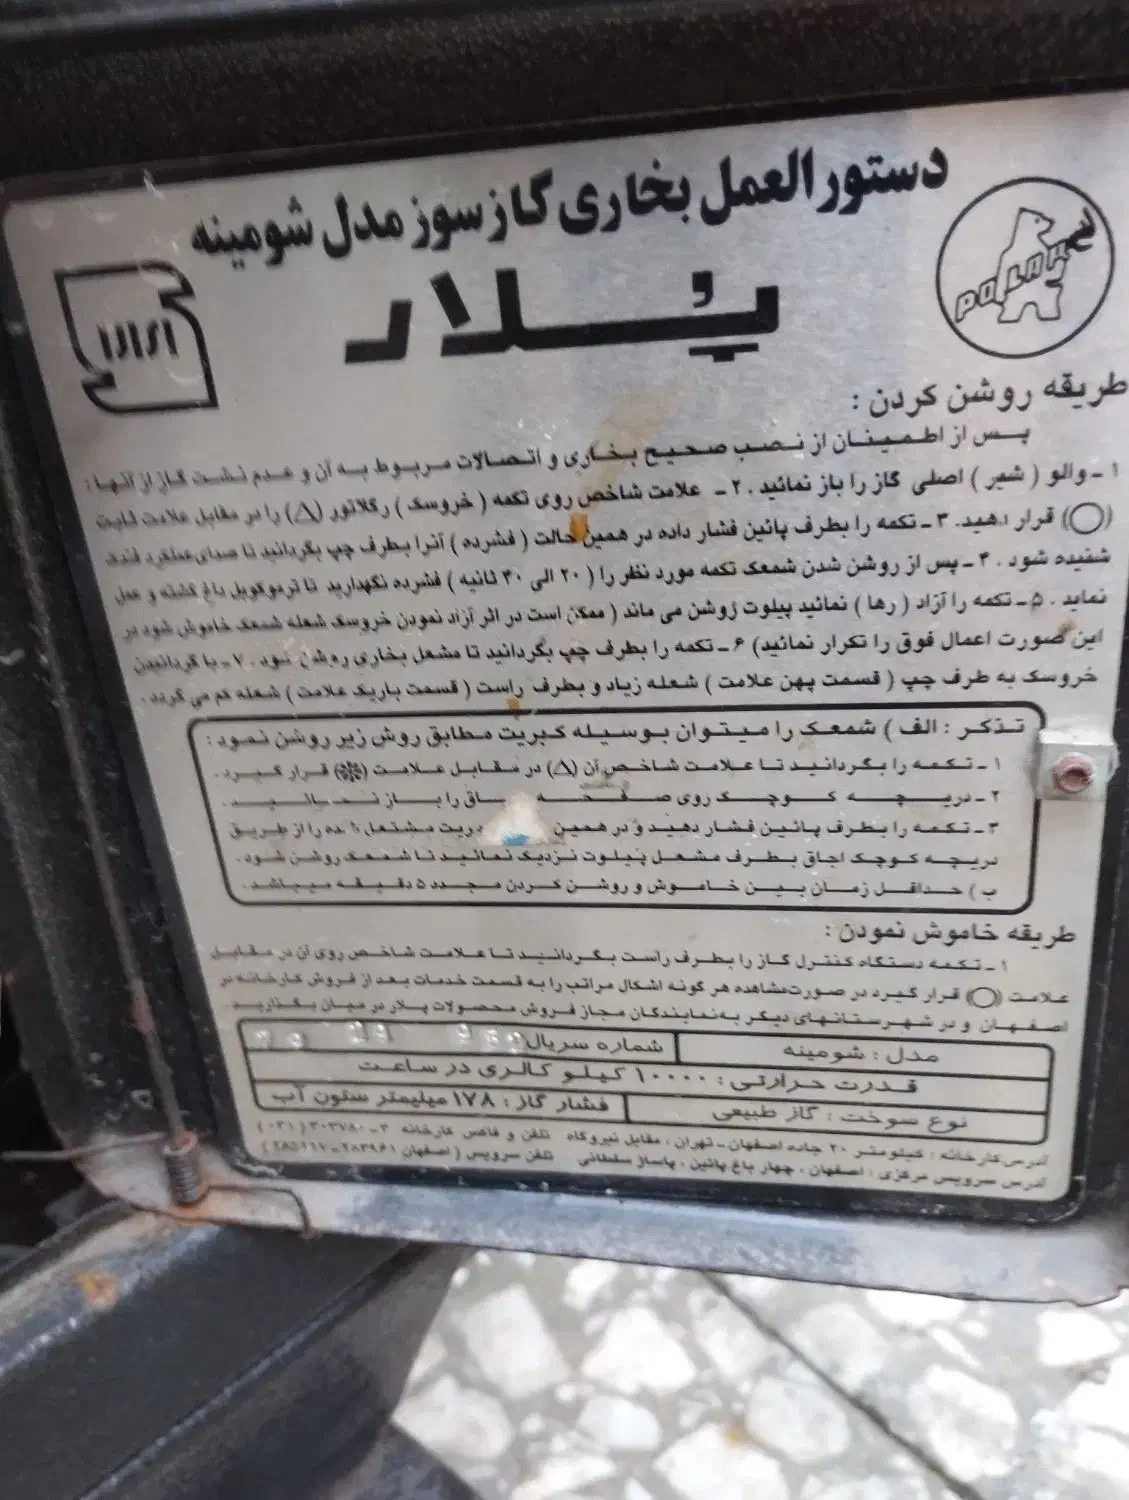 دستورالعمل بخاری گازسوز مدل شومینه
پلار
POLAR
طریقه روشن کردن :
پس از اطمینان از نصب صحیح بخاری و اتصالات مربوط به آن و عدم نشت گاز از آنها :
۱ - والو ( شیر ) اصلی گاز را باز نمائید . ۲ - علامت شاخص روی تکمه ( خروسک ) رگلاتور (△) را در مقابل علامت ثابت
(○) قرار دهید. ۳ - تکمه را بطرف پائین فشار داده در همین حالت ( فشرده ) آنرا بطرف چپ بگردانید تا صدای عملکرد فندک
شنیده شود . ۴ - پس از روشن شدن شمعک تکمه مورد نظر را ( ۲۰ الی ۳۰ ثانیه ) فشرده نگهدارید تا ترموکوپل داغ گشته و عمل
نماید . ۵ - تکمه را آزاد ( رها ) نمائید پیلوت روشن می ماند ( ممکن است در اثر آزاد نمودن خروسک شعله شمعک خاموش شود در
این صورت اعمال فوق را تکرار نمائید) ۶ - تکمه را بطرف چپ بگردانید تا مشعل بخاری روشن شود . ۷ - با گردانیدن
خروسک به طرف چپ ( قسمت پهن علامت ) شعله زیاد و بطرف راست ( قسمت باریک علامت ) شعله کم می گردد .
تذکر : الف ) شمعک را میتوان بوسیله کبریت مطابق روش زیر روشن نمود :
۱ - تکمه را بگردانید تا علامت شاخص آن (△) در مقابل علامت (✽) قرار گیرد .
۲ - دریچه کوچک روی صفحه را باز نمائید .
۳ - تکمه را بطرف پائین فشار دهید و در همین مشتعل شده را از طریق
دریچه کوچک اجاق بطرف مشعل پیلوت نزدیک نمائید تا شمعک روشن شود .
ب ) حداقل زمان بین خاموش و روشن کردن مجدد ۵ دقیقه میباشد .
طریقه خاموش نمودن :
۱ - تکمه دستگاه کنترل گاز را بطرف راست بگردانید تا علامت شاخص روی آن در مقابل
علامت (○) قرار گیرد در صورت مشاهده هر گونه اشکال مراتب را به قسمت خدمات بعد از فروش کارخانه در
اصفهان و در شهرستانهای دیگر به نمایندگان مجاز فروش محصولات پلار در میان بگذارید .
مدل : شومینه شماره سریال
قدرت حرارتی : ۱۰۰۰۰ کیلو کالری در ساعت
نوع سوخت : گاز طبیعی فشار گاز : ۱۷۸ میلیمتر ستون آب
آدرس کارخانه : کیلومتر ۲۰ جاده اصفهان - تهران ، مقابل نیروگاه تلفن و فاکس کارخانه
آدرس سرویس مرکزی : اصفهان ، چهار باغ پائین ، پاساژ سلطانی تلفن سرویس ( اصفهان